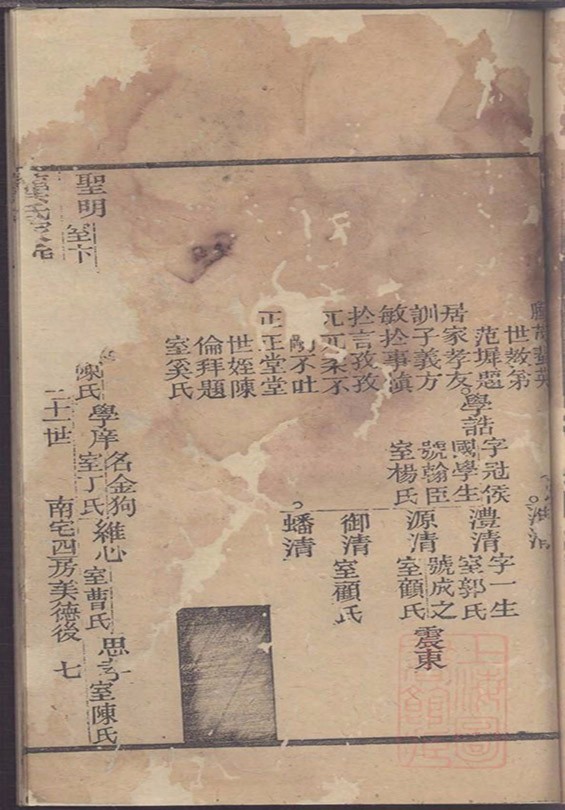 世敎弟
范墀題
居家孝友
訓子義方
敏扵事愼
扵言孜孜
兀兀柔不
剛不吐
正正堂堂
世姪陳
倫拜題
室奚氏
學誥
字冠侯
國學生
號翰臣
室楊氏
澧清
字一生
室郭氏
號成之
源清
室顧氏
震東
御清
室顧氏
蟠清
聖明
室卞
陳氏
學庠
名金狗
室丁氏
維心
室曹氏
思
室陳氏
二十世
南宅四房美德後
七